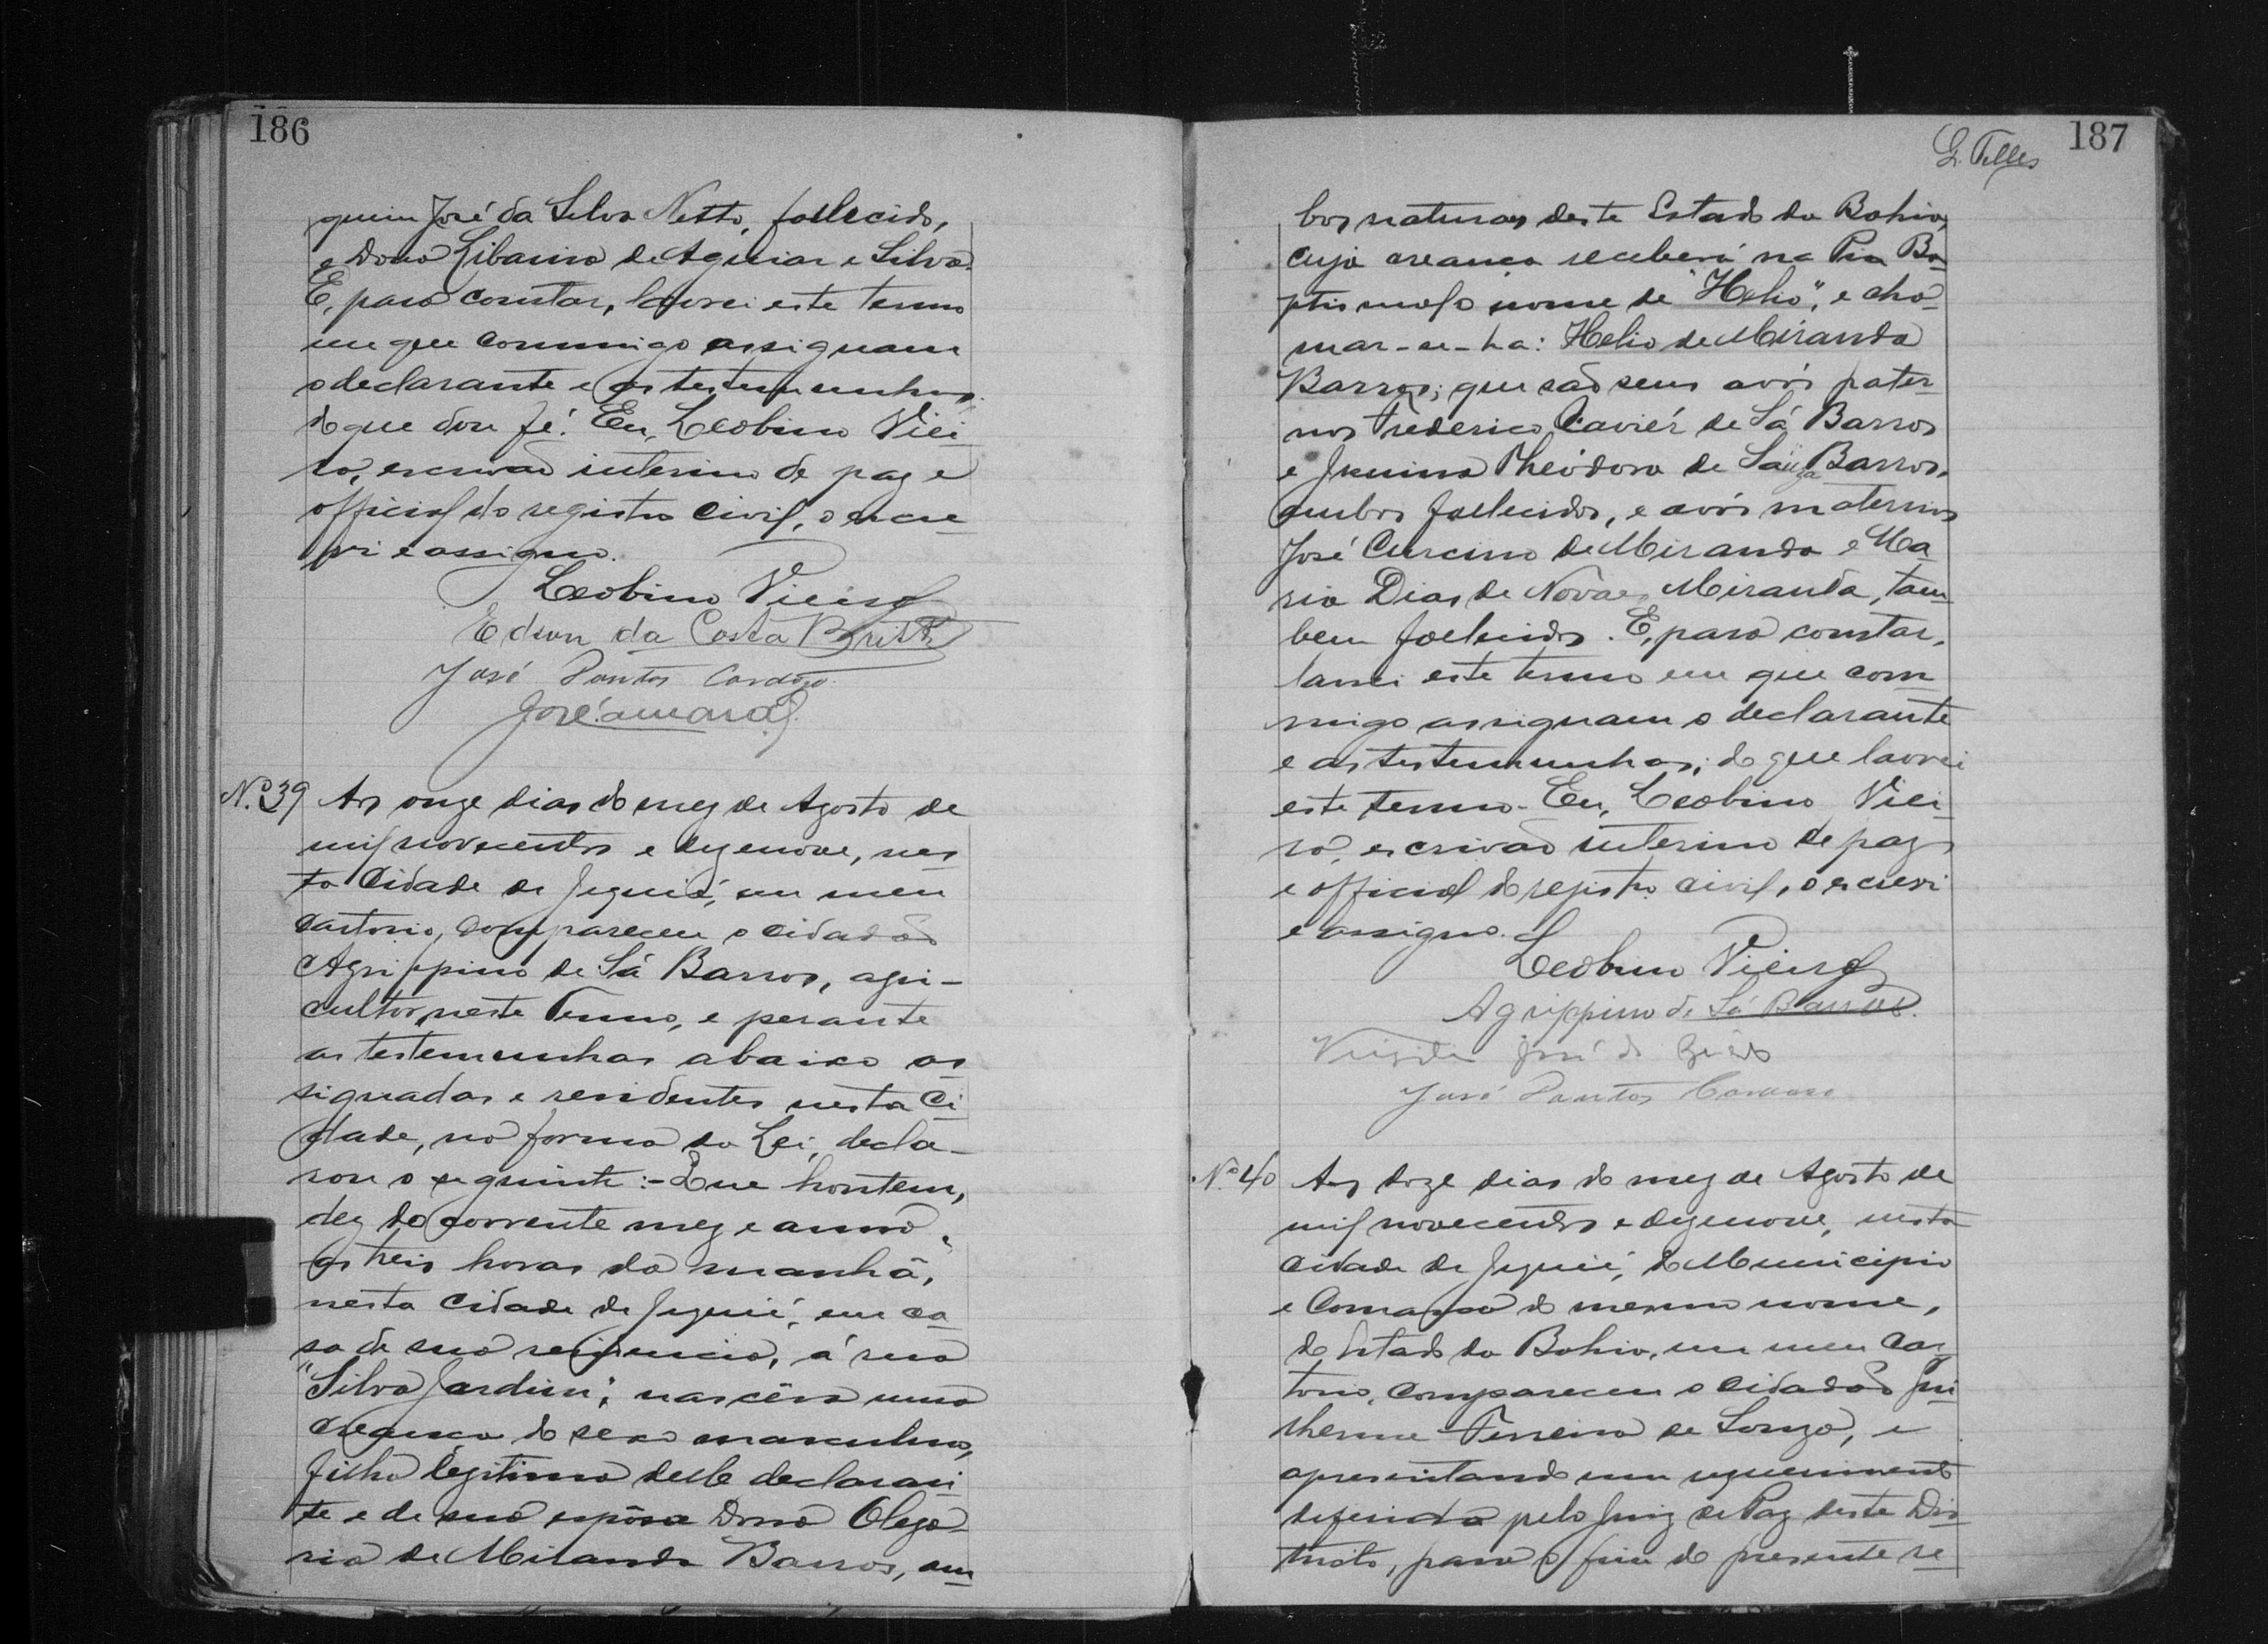 186
quim José da Silva Netto, fallecido,
e Dona Libania de Aguiar e Silva.
E, para constar, lavrei este termo
em que commigo assignam
o declarante e as testemunhas
do que dou fé. Eu, Leobino Viei-
ra, escrivão interino de paz e
official do registro civil, o escre-
vi e assigno.
Leobino Vieira
Edson da Costa Britto
José Santos Cardozo
José Amaral
Nº 39 Aos onze dias do mez de Agosto de
mil novecentos e dezenove, nes-
ta Cidade de Jequié, em meu
cartorio, compareceu o cidadão
Agrippino de Sá Barros, agri-
cultor neste Termo, e perante
as testemunhas abaixo as
signadas e residentes nesta Ci-
dade, na forma da Lei, decla-
rou o seguinte:- Que hontem,
dez do corrente mez e anno,
as treis horas da manhã,
nesta Cidade de Jequié, em ca-
sa de sua residencia, á rua
"Silva Jardim", nascêra uma
creança do sexo masculino,
filho legitimo delle declaran-
te e de sua espôsa Dona Olega-
ria de Miranda Barros, am-
G. Telles
187
bos naturaes deste Estado da Bahia,
cuja creança receberá na Pia Ba-
ptismal o nome de "Helio", e cha-
mar-se-ha: Helio de Miranda
Barros; que são seus avós pater-
nos Frederico Xavier de Sá Barros
e Theodora de Barros,
ambos fallecidos, e avós maternos
José Curcino de Miranda e Ma-
ria Dias de Novaes Miranda, tam-
bem fallecidos. E, para constar,
lavrei este termo em que com-
migo assignam o declarante
e as testemunhas; do que lavrei
este termo. Eu, Leobino Viei-
ra, escrivão interino de paz
e official do registro civil, o escrevi
e assigno.
Leobino Vieira
Agrippino de Sá Barros.
José de
José Santos Cardozo
Nº 40 Aos doze dias do mez de Agosto de
mil novecentos e dezenove, nesta
Cidade de Jequié, do Municipio
e Comarca do mesmo nome,
do Estado da Bahia, em meu Car-
torio, compareceu o cidadão Gui-
lherme Ferreira de Souza, e
apresentando um requerimento
deferido pelo Juiz de Paz deste Dis-
tricto, para o fim do presente re-